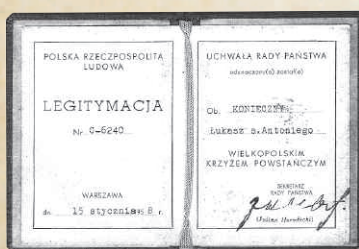 POLSKA RZECZPOSPOLITA
LUDOWA
LEGITYMACJA
Nr C-6240
WARSZAWA
dn. 15 stycznia 8 r.
UCHWAŁĄ RADY PAŃSTWA
odznaczony(a) został(a)
Ob. KONIECZNY
Łukasz s.Antoniego
WIELKOPOLSKIM
KRZYŻEM POWSTAŃCZYM
SEKRETARZ
RADY PAŃSTWA
(Julian Horodecki)